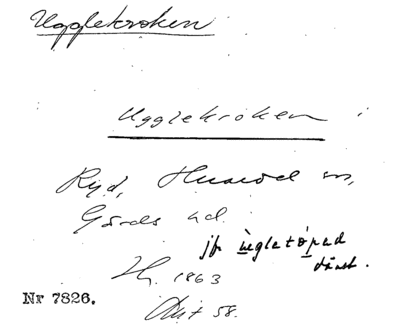 Ugglekroken
Ugglekroken i
Ryd, Huaröd sn,
Gärds hd.
jfr ùgletòpad
Hg. 1863
Akt 58.
Nr 7826.